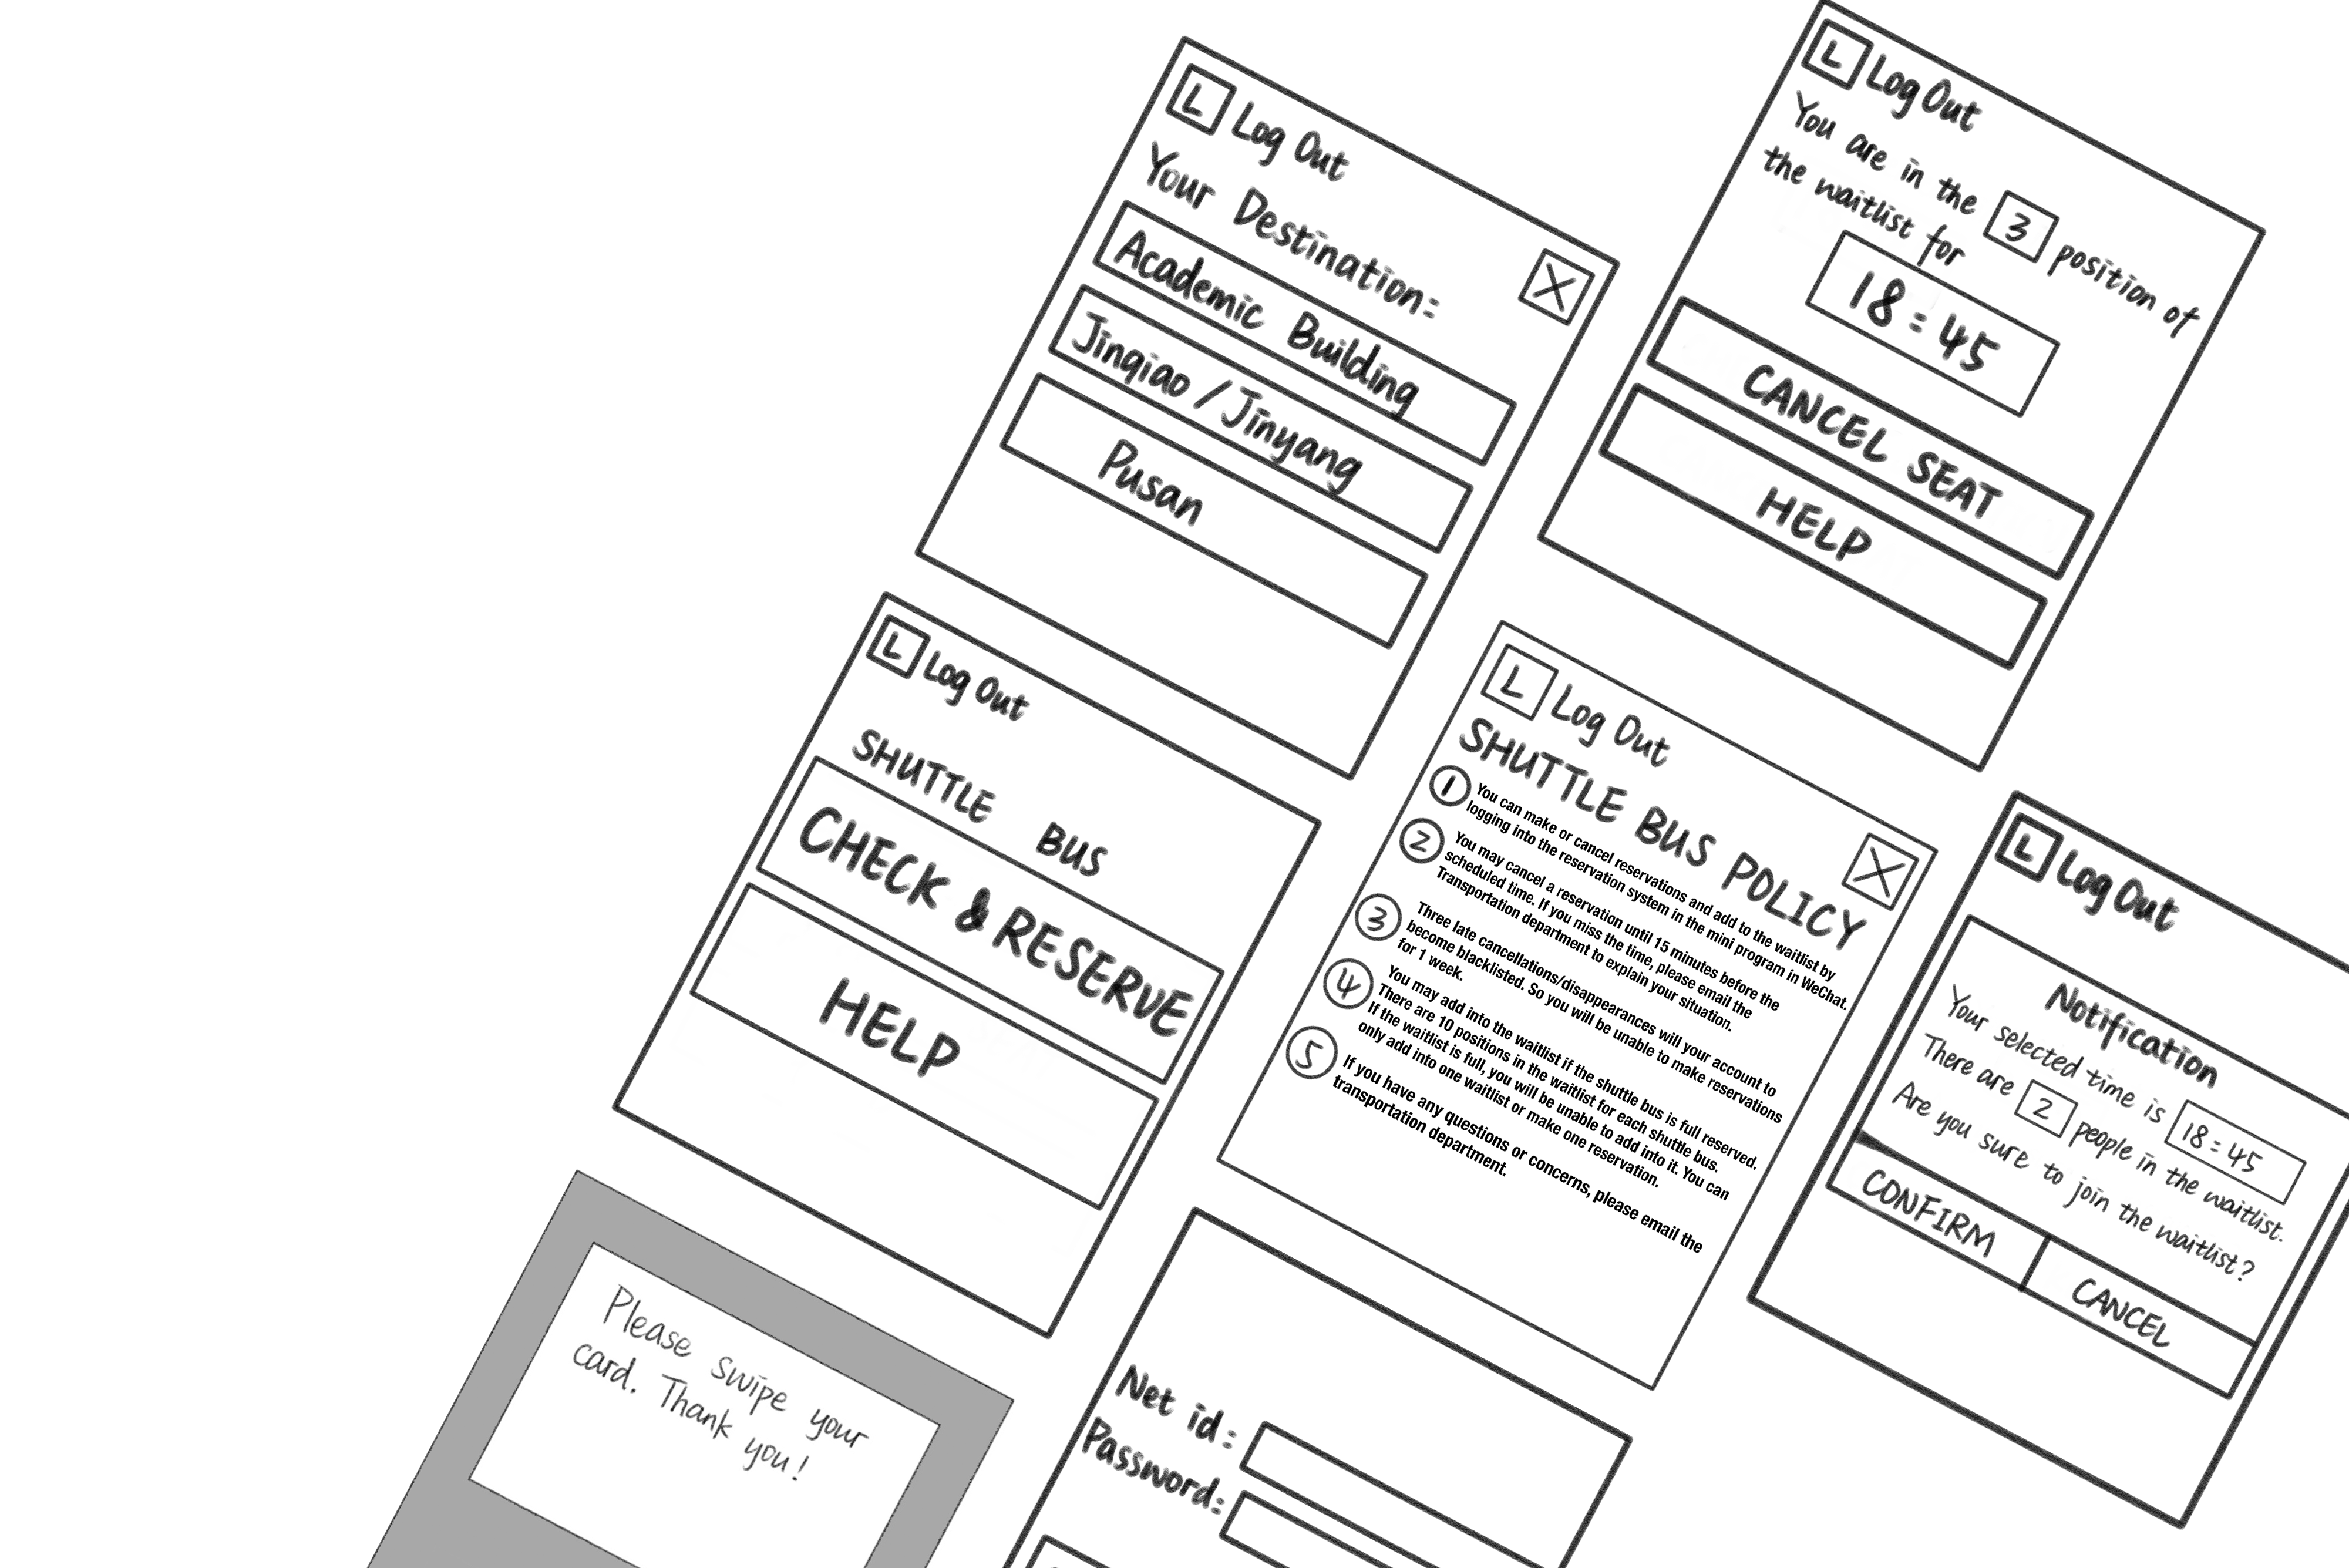 L Log Out
Your Destination:
X
Academic Building
Jinqiao / Jinyang
Pusan
L Log Out
You are in the 3 position of
the waitlist for
18:45
CANCEL SEAT
HELP
L Log Out
SHUTTLE BUS
CHECK & RESERVE
HELP
L Log Out
SHUTTLE BUS POLICY
X
1 You can make or cancel reservations and add to the waitlist by
logging into the reservation system in the mini program in WeChat.
2 You may cancel a reservation until 15 minutes before the
scheduled time. If you miss the time, please email the
Transportation department to explain your situation.
3 Three late cancellations/disappearances will your account to
become blacklisted. So you will be unable to make reservations
for 1 week.
4 You may add into the waitlist if the shuttle bus is full reserved.
There are 10 positions in the waitlist for each shuttle bus.
If the waitlist is full, you will be unable to add into it. You can
only add into one waitlist or make one reservation.
5 If you have any questions or concerns, please email the
transportation department.
L Log Out
Notification
Your selected time is 18:45
There are 2 people in the waitlist.
Are you sure to join the waitlist?
CONFIRM
CANCEL
Please swipe your
card. Thank you!
Net id:
Password: